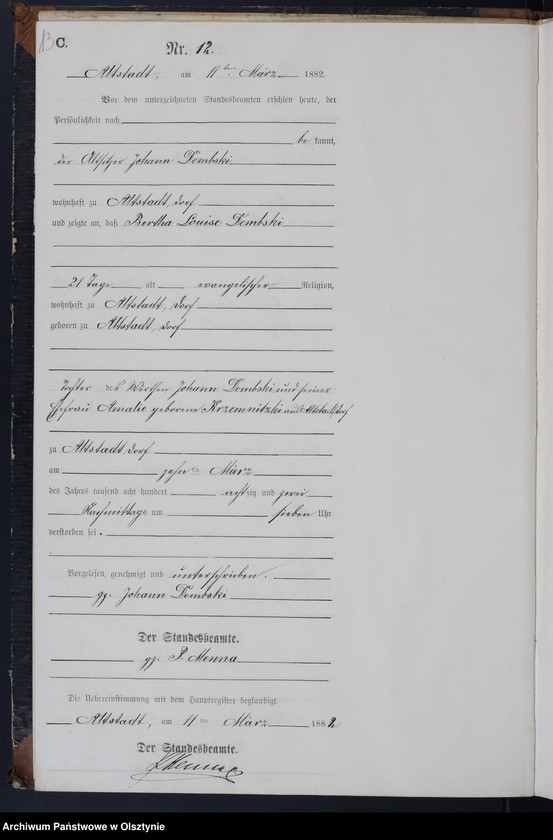 13
C.
Nr. 12.
Altstadt, am 11ten März 1882.
Vor dem unterzeichneten Standesbeamten erschien heute, der
Persönlichkeit nach
be kannt,
der Altsitzer Johann Dembski
wohnhaft zu Altstadt, dorf
und zeigte an, daß Bertha Louise Dembski
21 Tage alt evangelischer Religion,
wohnhaft zu Altstadt, dorf
geboren zu Altstadt, dorf
Tochter des Wirthen Johann Dembski und seiner
Ehefrau Amalie geborene Krzemnitzki aus Altstadtdorf
zu Altstadt, dorf
am zehnten März
des Jahres tausend acht hundert achtzig und zwei
Nachmittags um sieben Uhr
verstorben sei.
Vorgelesen, genehmigt und unterschrieben.
gz. Johann Dembski
Der Standesbeamte.
gz. P. Menna
Die Uebereinstimmung mit dem Hauptregister beglaubigt.
Altstadt, am 11ten März 1882
Der Standesbeamte.
Menna
Archiwum Państwowe w Olsztynie